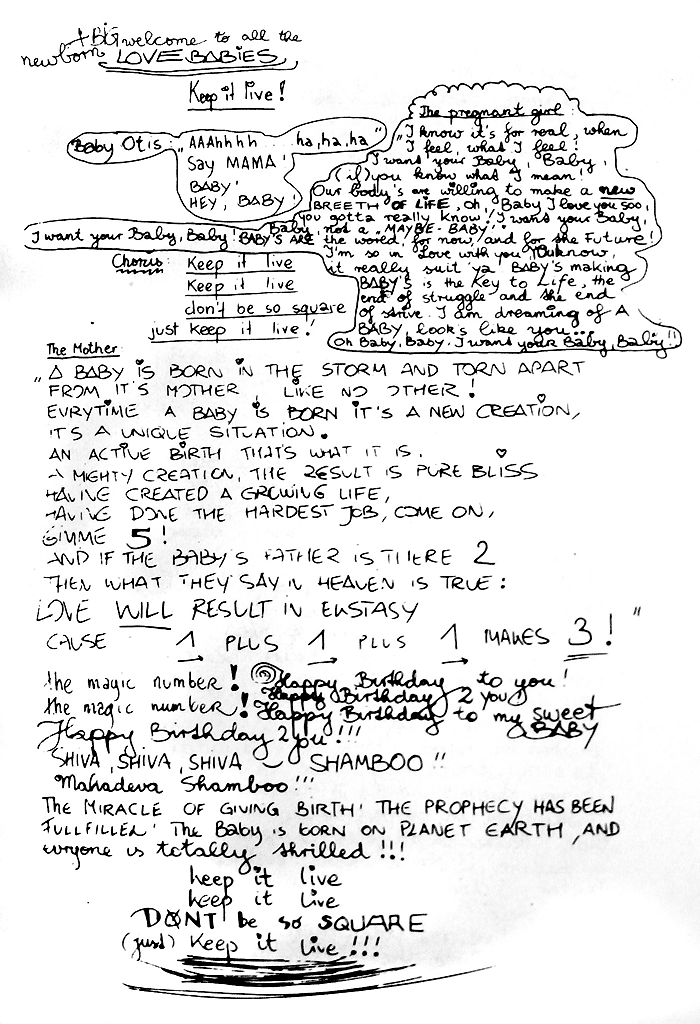 + BIG welcome to all the
newborn LOVE BABIES
Keep it live!
Baby Otis: „AAAhhhh.... ha, ha, ha"
Say MAMA!
BABY!
HEY, BABY!
The pregnant girl:
„I know it's for real, when
I feel, what I feel!
I want your Baby, Baby,
(if) you know what I mean!
Our body's are willing to make a new
BREETH OF LIFE, oh, Baby I love you soo,
you gotta really know! I want your Baby,
Baby, not a „MAYBE-BABY".
I want your Baby, Baby! BABY'S ARE the world, for now, and for the Future!
I'm so in Love with you, You know,
it really suit 'ya' BABY's making
BABY'S is the Key to Life, the
end of struggle and the end
of strive. I am dreaming of A
BABY, look's like you....
Oh Baby, Baby. I want your Baby, Baby"
Chorus: Keep it live
Keep it live
don't be so square
just Keep it live!
The Mother:
„A BABY IS BORN IN THE STORM AND TORN APART
FROM IT'S MOTHER, LIKE NO OTHER!
EVRYTIME A BABY IS BORN IT'S A NEW CREATION,
IT'S A UNIQUE SITUATION.
AN ACTIVE BIRTH THAT'S WHAT IT IS.
A MIGHTY CREATION, THE RESULT IS PURE BLISS
HAVING CREATED A GROWING LIFE,
HAVING DONE THE HARDEST JOB, COME ON,
GIMME 5!
AND IF THE BABY'S FATHER IS THERE 2
THEN WHAT THEY SAY IN HEAVEN IS TRUE:
LOVE WILL RESULT IN EKSTASY
CAUSE 1 PLUS 1 PLUS 1 MAKES 3!"
the magic number! Happy Birthday to you!
Happy Birthday 2 you
the magic number! Happy Birthday to my sweet
BABY
Happy Birthday 2 you!!!
SHIVA, SHIVA, SHIVA SHAMBOO!!
Mahadeva Shamboo!!!
THE MIRACLE OF GIVING BIRTH! THE PROPHECY HAS BEEN
FULLFILLED! The Baby is born ON PLANET EARTH, AND
evryone is totally thrilled!!!
keep it live
keep it live
DONT be so SQUARE
(just) Keep it live!!!